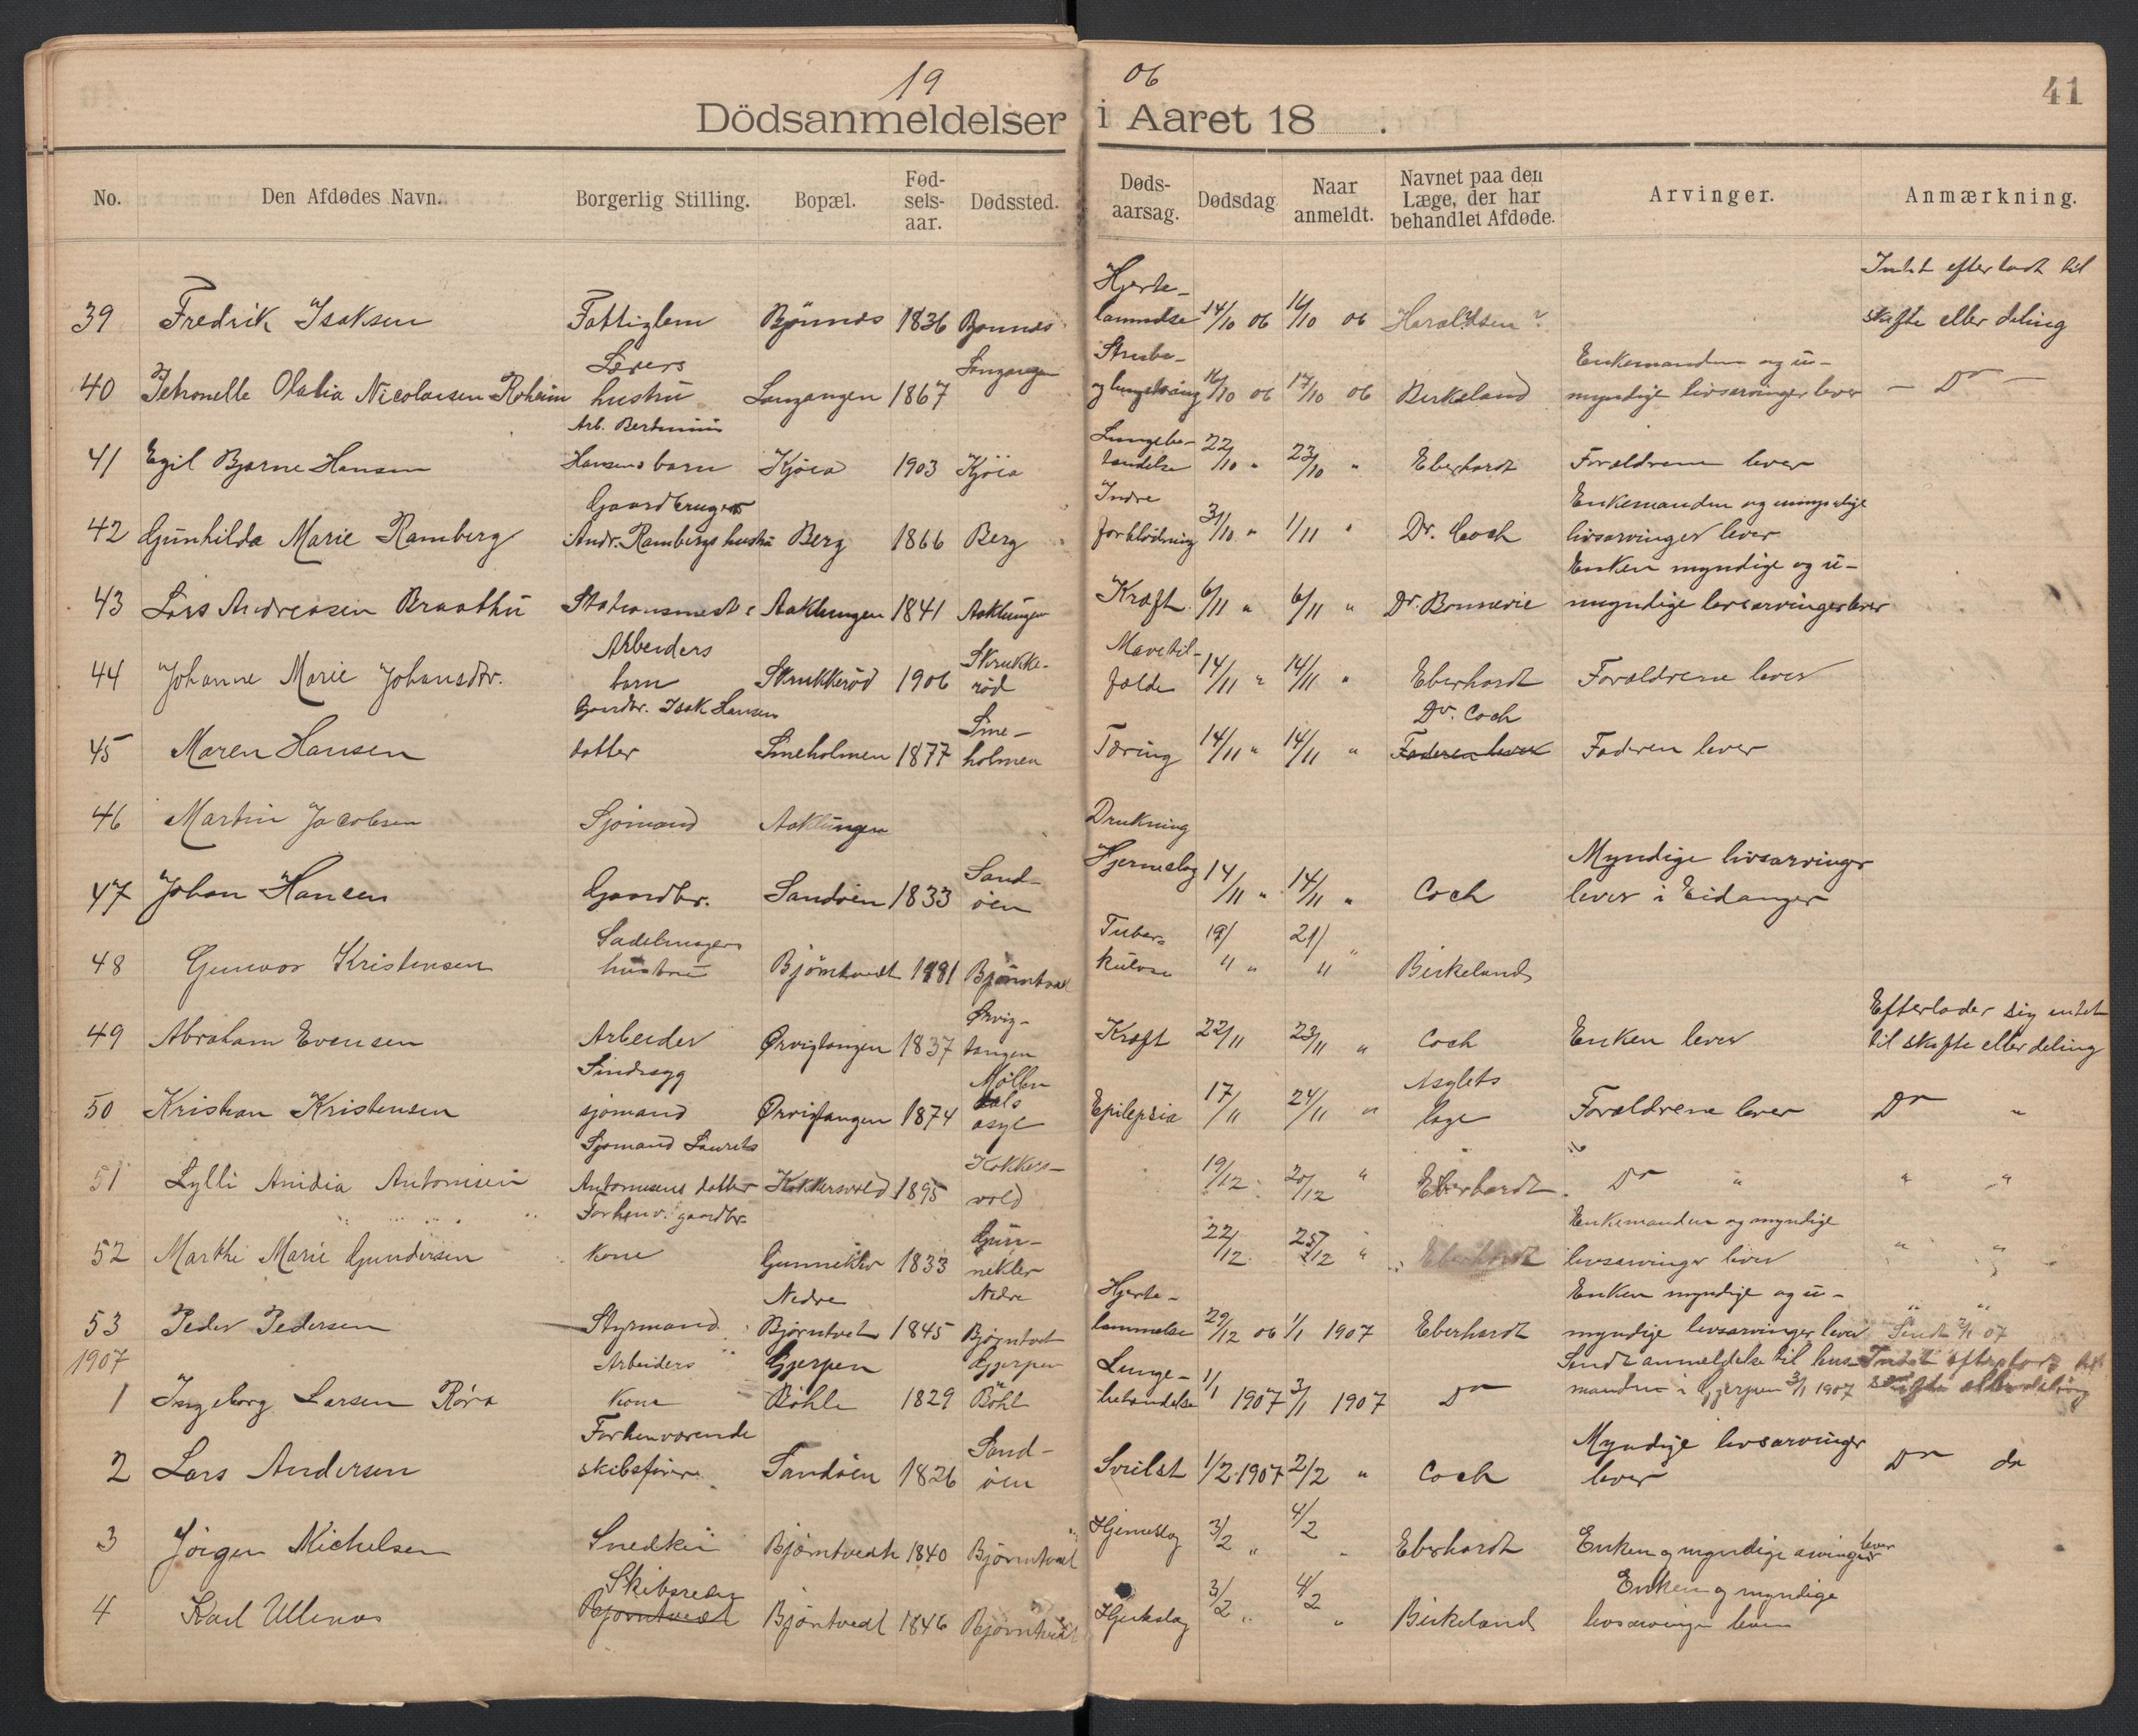 19 06
Dödsanmeldelser i Aaret 18 .
41
No. Den Afdødes Navn. Borgerlig Stilling. Bopæl. Fød-sels-aar. Dødssted. Døds-aarsag. Dødsdag Naar anmeldt. Navnet paa den Læge, der har behandlet Afdøde. Arvinger. Anmærkning.
Hjerte- Intet efterladt til
39 Fredrik Isaksen Fattiglem 1836 14/10 06 16/10 06 Haraldsen? skifte eller deling
Strube- Enkemanden og u-
40 Nicolaisen hustru Langangen 1867 Langangen 16/10 06 17/10 06 Birkeland myndige livsarvinger lever — Do —
Arb.
41 Egil Bjarne Hansen Hansens barn 1903 22/10 " 23/10 " Eberhardt Forældrene lever
Gaardbrugers Indre Enkemanden og
42 Gunhilda Marie Ramberg Andr. Rambergs hustru Berg 1866 Berg forblödning 31/10 " 1/11 " Dr. Coch livsarvinger lever
Enken myndige og u-
43 Lars Andreasen Aaklungen 1841 Aaklungen Kræft 6/11 " 6/11 " Dr. Bonnevie myndige livsarvinger lever
Arbeiders Skrukke- Mavetil-
44 Johanne Marie Johansdtr. barn Skrukkerød 1906 rød fælde 14/11 " 14/11 " Eberhardt Forældrene lever
Gaardbr. Isak Hansen Dr. Coch
45 Maren Hansen datter 1877 holmen Tæring 14/11 " 14/11 " Faderen lever Faderen lever
46 Martin Jacobsen Sjömand Aaklungen Drukning
Sand- Hjerneslag Myndige livsarvinger
47 Johan Hansen Gaardbr. Sandöen 1833 öen 14/11 " 14/11 " Coch lever i Eidanger
Sadelmagers Tuber-
48 Gunvor Kristensen hustru Björntvedt 1881 Björntvedt kulose 19/11 " 21/11 " Birkeland
Ørvig- Efterlader sig intet
49 Abraham Evensen Arbeider Ørvigtangen 1837 tangen Kræft 22/11 23/11 " Coch Enken lever til skifte eller deling
Sindssyg Möllen Asylets
50 Kristian Kristensen sjömand Ørvigtangen 1874 dals asyl Epilepsia 17/11 24/11 " læge Forældrene lever Do "
Sjömand Laurits Kokkers-
51 Lylli Antonisen Antonisens datter Kokkersvold 1895 vold 19/12 20/12 " Eberhardt Do " " "
Forhenv. gaardbr. Gun- Enkemanden og myndige
52 Marthe Marie Gundersen kone Gunnekler 1833 nekler 22/12 " Eberhardt livsarvinger lever " " "
Nedre Nedre Hjerte- Enken myndige og u- " "
53 Peder Pedersen Styrmand Björntvet 1845 Björntvet lammelse 29/12 06 1/1 1907 Eberhardt myndige livsarvinger lever Sendt 2/1 07
1907 Arbeiders Gjerpen Gjerpen Lunge- Sendt anmeldelse til hus- Intet
1 Ingeborg Larsen Röra Kone Böhle 1829 Böhl betændelse 1/1 1907 3/1 1907 Do manden i Gjerpen 3/1 1907 skifte eller deling
Forhenværende Sand- Myndige livsarvinger
2 Lars Andersen skibsförer Sandöen 1826 öen Svulst 1/2 1907 2/2 " Coch lever Do do
3 Jörgen Michelsen Snedker Björntvedt 1840 Björntvedt Hjerneslag 3/2 " 4/2 " Eberhardt Enken og myndige arvinger lever
Skibsreder Enken og myndige
4 Karl Björntvedt Björntvedt 1846 Björntvedt 3/2 " 4/2 " Birkeland livsarvinger lever